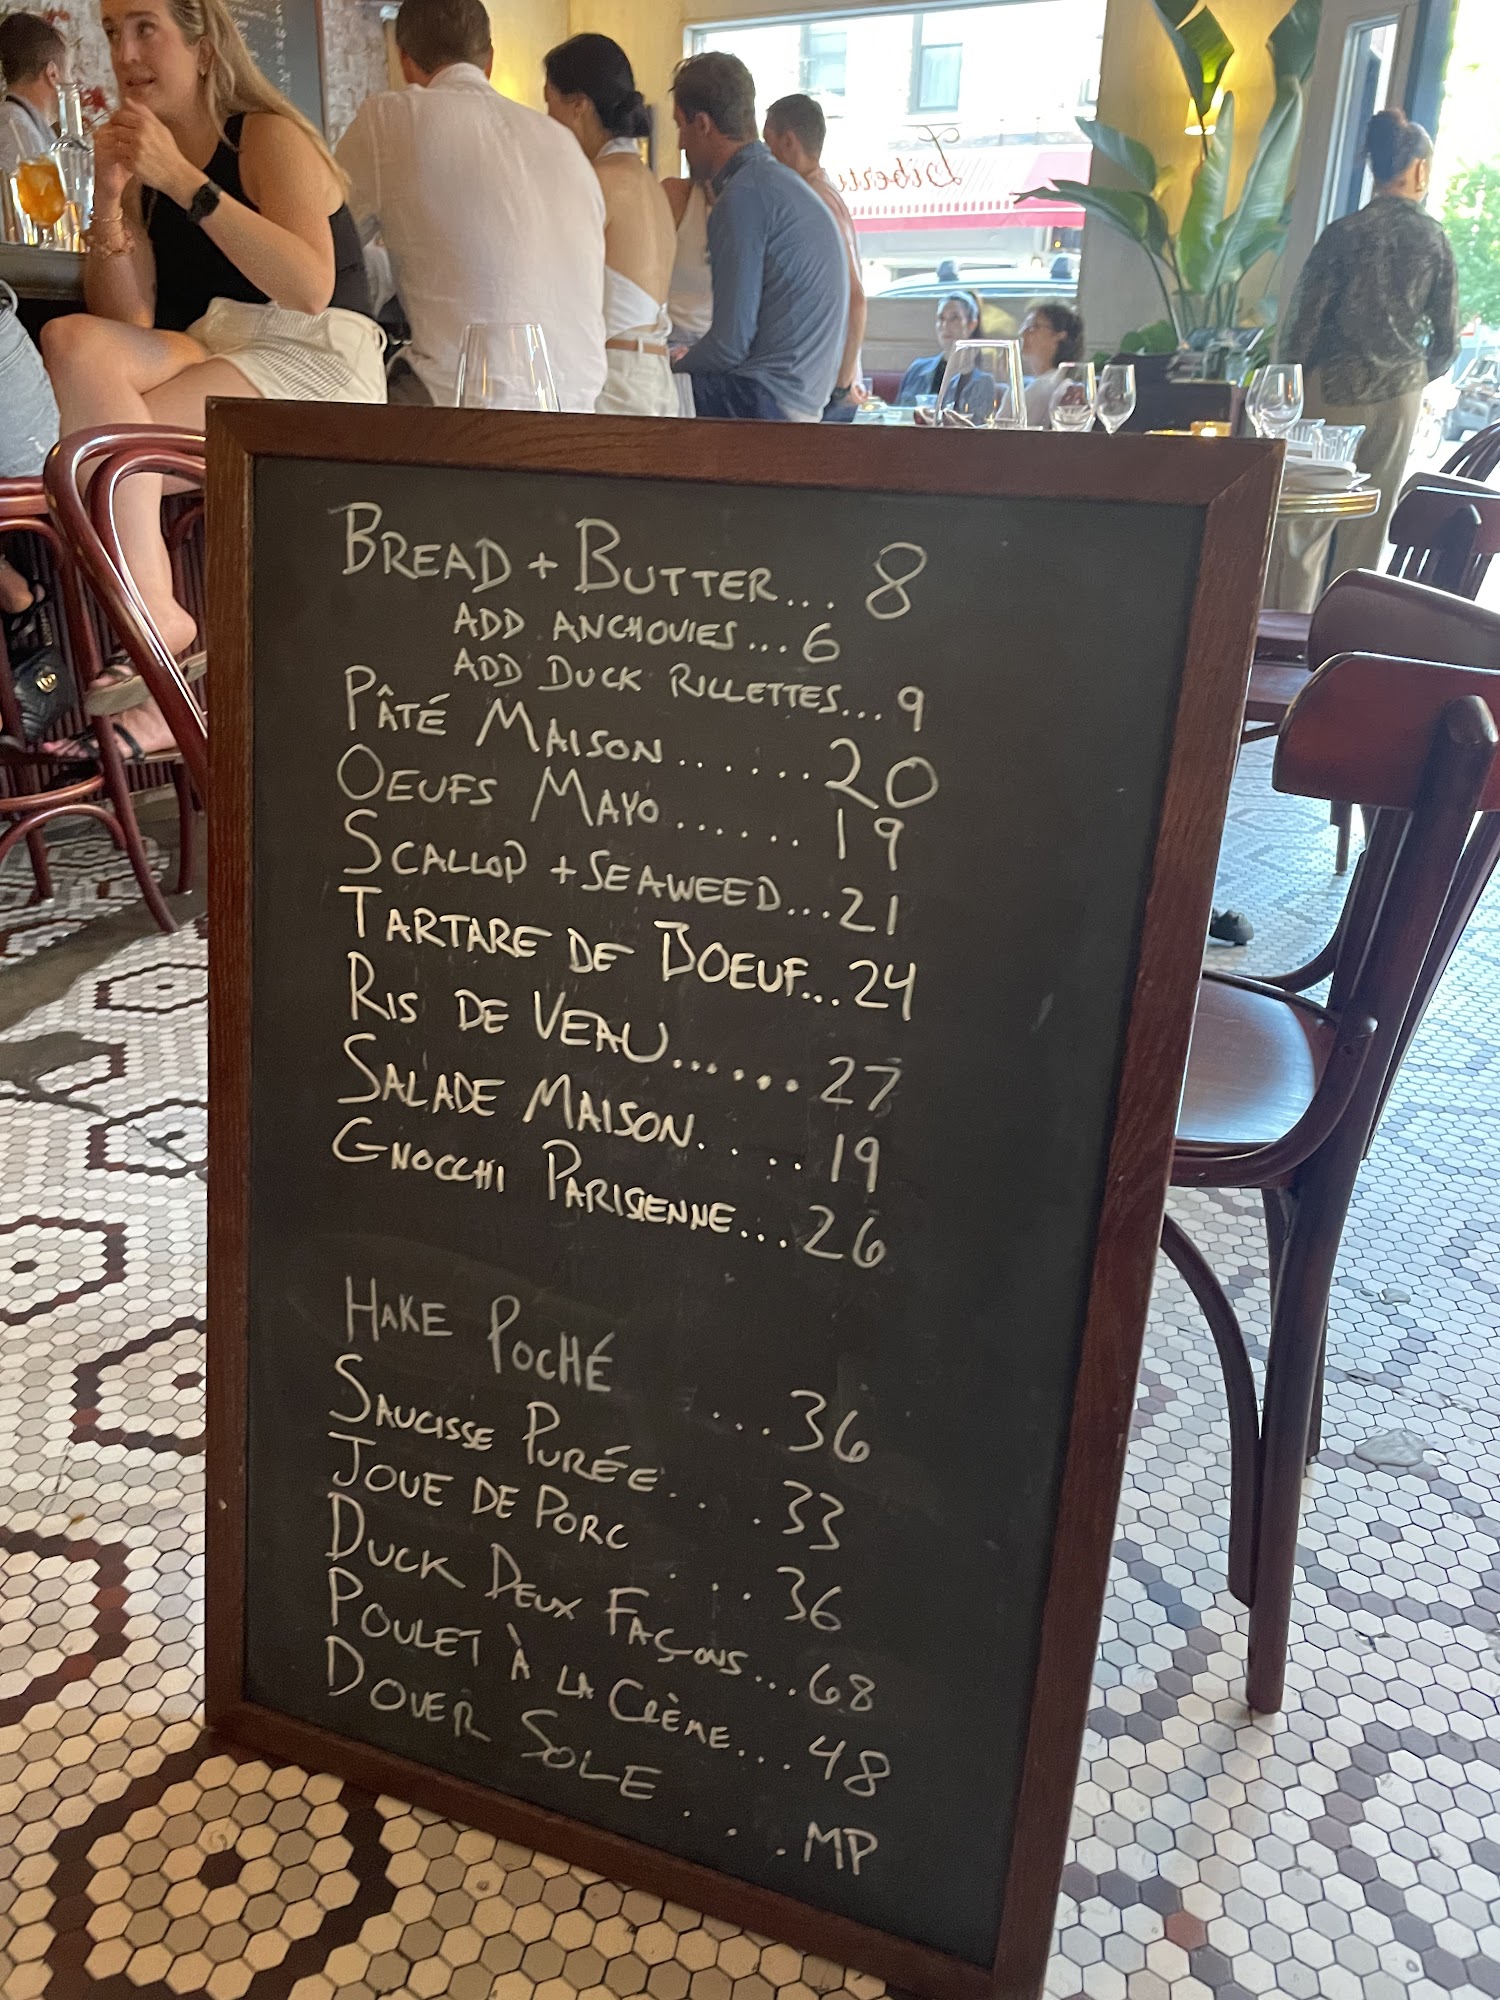 Libertine
BREAD + BUTTER... 8
ADD ANCHOVIES... 6
ADD DUCK RILLETTES... 9
PÂTÉ MAISON...... 20
OEUFS MAYO...... 19
SCALLOP + SEAWEED... 21
TARTARE DE BOEUF... 24
RIS DE VEAU...... 27
SALADE MAISON.... 19
GNOCCHI PARISIENNE... 26
HAKE POCHÉ ... 36
SAUCISSE PURÉE... 33
JOUE DE PORC ... 36
DUCK DEUX FAÇONS... 68
POULET À LA CRÈME... 48
DOVER SOLE... MP